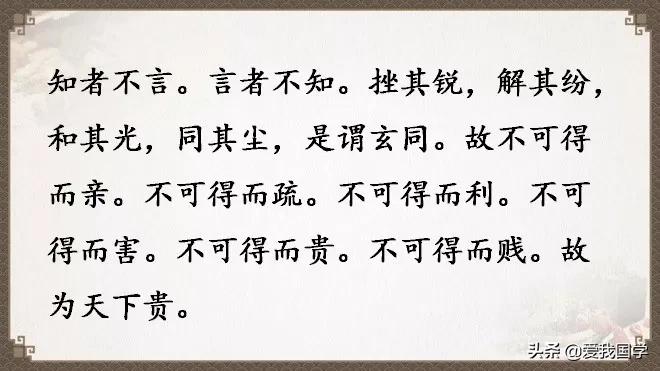 知者不言。言者不知。挫其锐，解其纷，
和其光，同其尘，是谓玄同。故不可得
而亲。不可得而疏。不可得而利。不可
得而害。不可得而贵。不可得而贱。故
为天下贵。
头条 @爱我国学